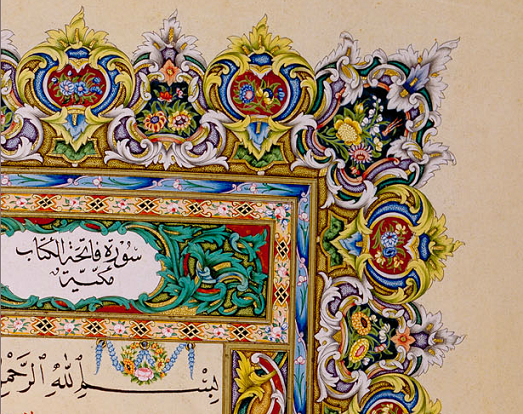 سورة فاتحة الكتاب
مكية
بِسْمِ اللَّهِ الرَّحْمٰ